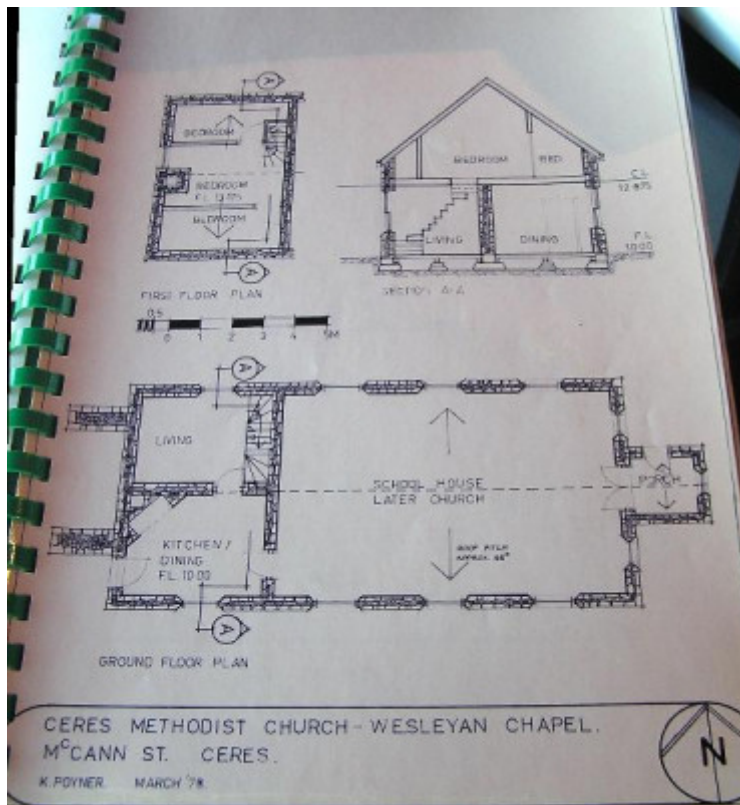 A
BEDROOM
BEDROOM
F.L. 12.875
BEDROOM
A
FIRST FLOOR PLAN
BEDROOM
BED.
C.L.
12.875
LIVING
DINING
F.L.
10.00
SECTION A-A
0.5
0 1 2 3 4 5M
A
LIVING
SCHOOL HOUSE
LATER CHURCH
PORCH
KITCHEN/
DINING
F.L. 10.00
ROOF PITCH
APPROX.
A
GROUND FLOOR PLAN
CERES METHODIST CHURCH - WESLEYAN CHAPEL.
McCANN ST. CERES.
K. POYNER. MARCH '78.
N